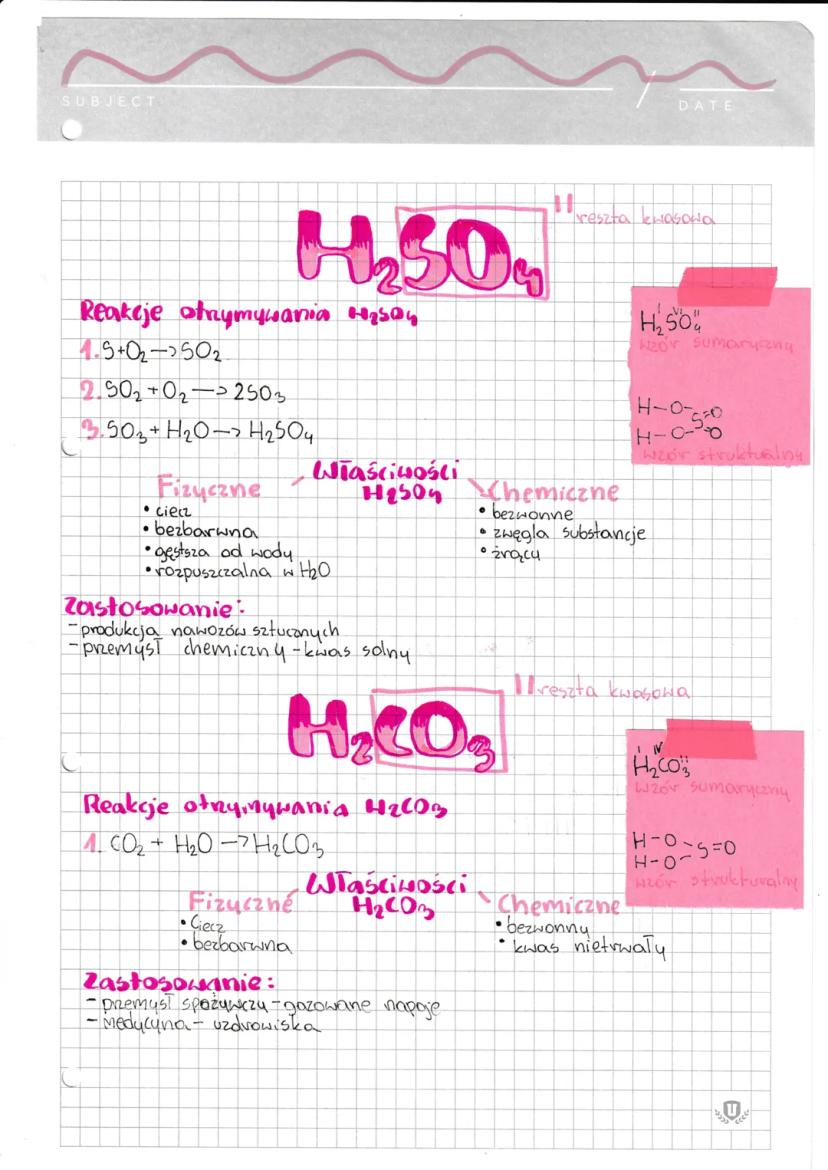 SUBJECT
DATE
H₂SO₄
II reszta kwasowa
Reakcje otrzymywania H₂SO₄
1. S+O₂ → SO₂
2. SO₂ + O₂ → 2SO₃
3. SO₃ + H₂O → H₂SO₄
I VI II
H₂SO₄
wzór sumaryczny
H-O
S=O
H-O O
wzór strukturalny
Właściwości
H₂SO₄
Fizyczne
• ciecz
• bezbarwna
• gęstsza od wody
• rozpuszczalna w H₂O
Chemiczne
• bezwonne
• zwęgla substancje
• żrący
Zastosowanie:
- produkcja nawozów sztucznych
- przemysł chemiczny - kwas solny
H₂CO₃
II reszta kwasowa
I IV II
H₂CO₃
wzór sumaryczny
H-O
S=O
H-O
wzór strukturalny
Reakcje otrzymywania H₂CO₃
1. CO₂ + H₂O → H₂CO₃
Właściwości
H₂CO₃
Fizyczné
• Ciecz
• bezbarwna
Chemiczne
• bezwonny
• kwas nietrwały
Zastosowanie:
- przemysł spożywczy - gazowane napoje
- Medycyna - uzdrowiska
U